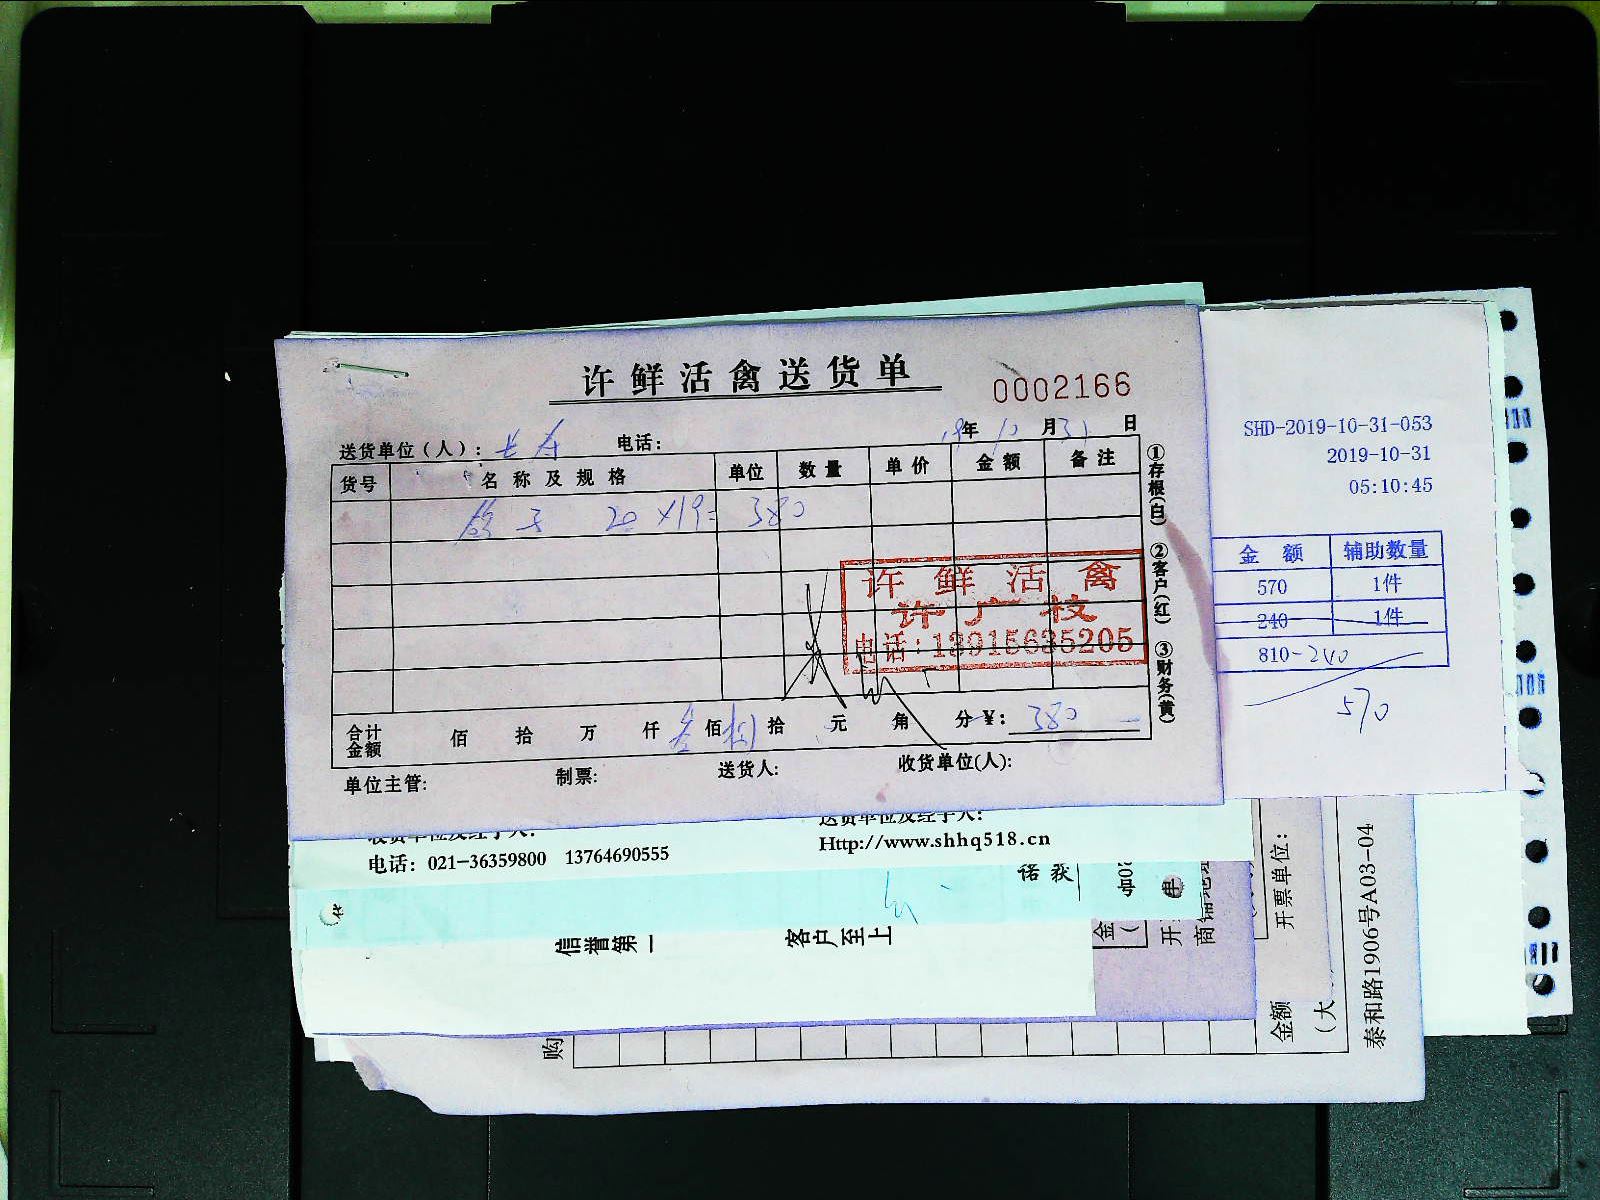 许鲜活禽送货单
0002166
送货单位(人): 电话: 19年 10月 31日
货号 名称及规格 单位 数量 单价 金额 备注
鸽子 20×19= 380
许鲜活禽
许广枝
电话:13915635205
合计金额 佰 拾 万 仟 叁佰捌拾 元 角 分 ¥: 380
单位主管: 制票: 送货人: 收货单位(人):
①存根(白) ②客户(红) ③财务(黄)
SHD-2019-10-31-053
2019-10-31
05:10:45
金 额 辅助数量
570 1件
240 1件
810-240
570
收货单位及经手人: 送货单位及经手人:
电话: 021-36359800 13764690555
Http://www.shhq518.cn
信誉第一 客户至上
购
金额
(大
开票单位:
泰和路1906号A03-04